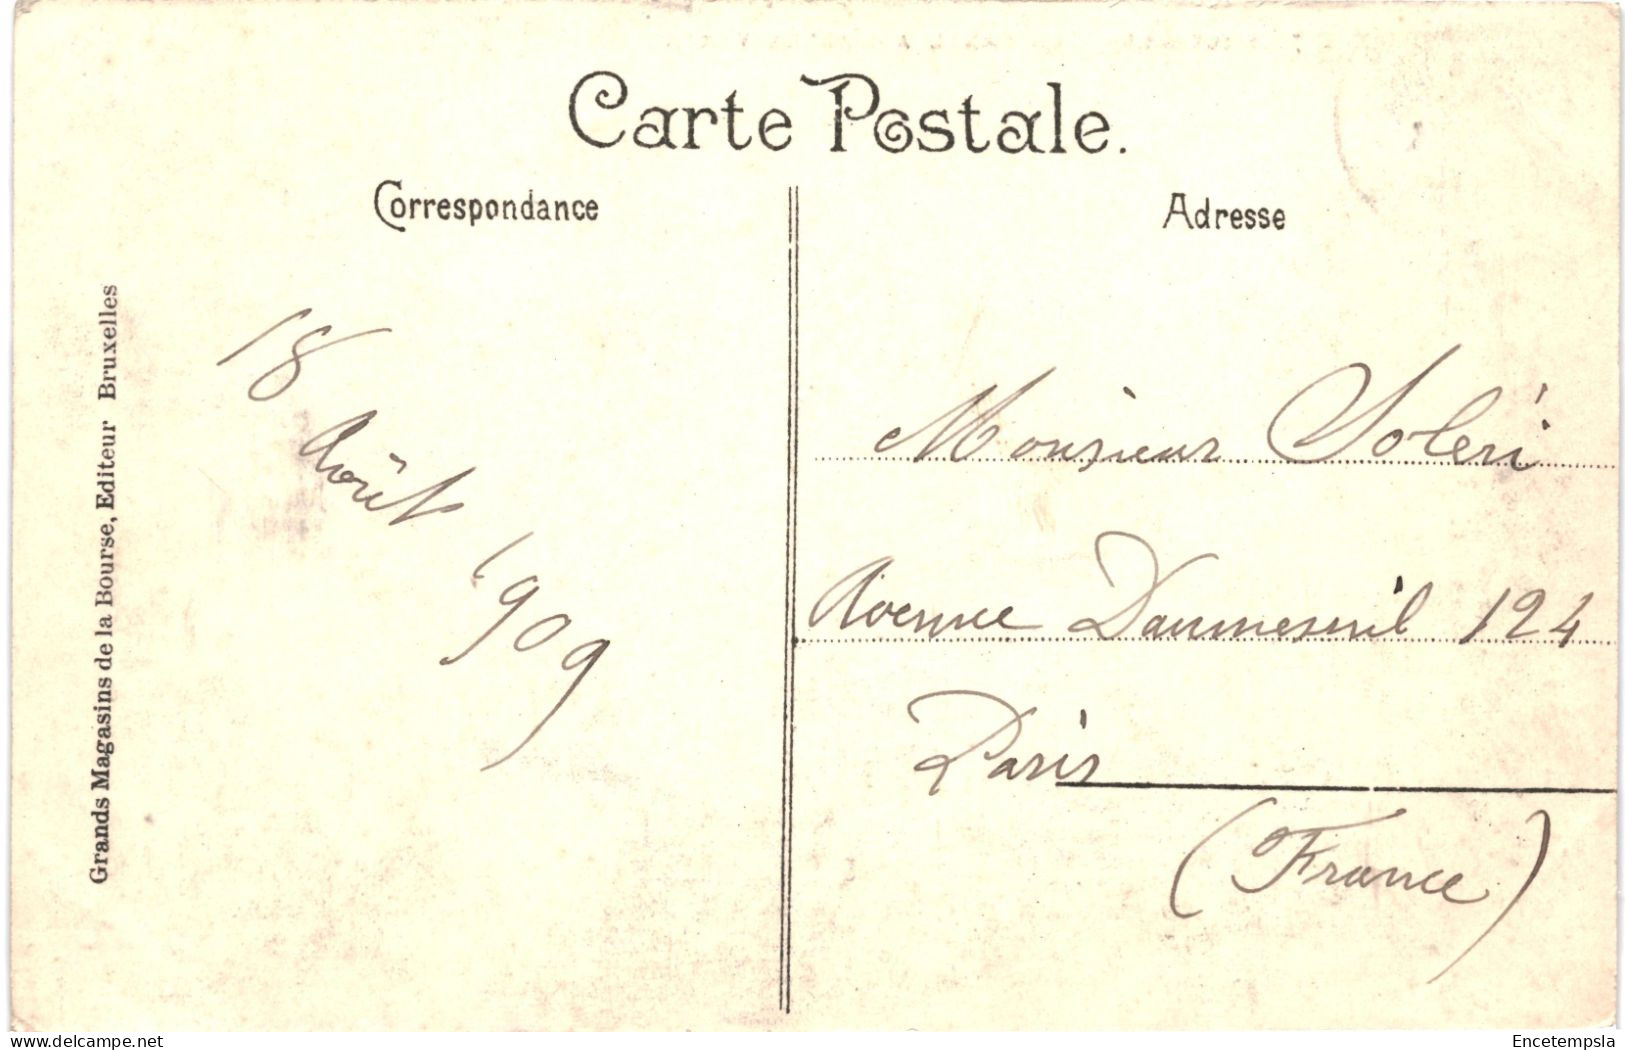 Carte Postale.
Correspondance
Adresse
Grands Magasins de la Bourse, Editeur Bruxelles
18
Août
1909
Monsieur Soleri
Avenue Daumesnil 124
Paris
(France)
delcampe.net
Encetempsla